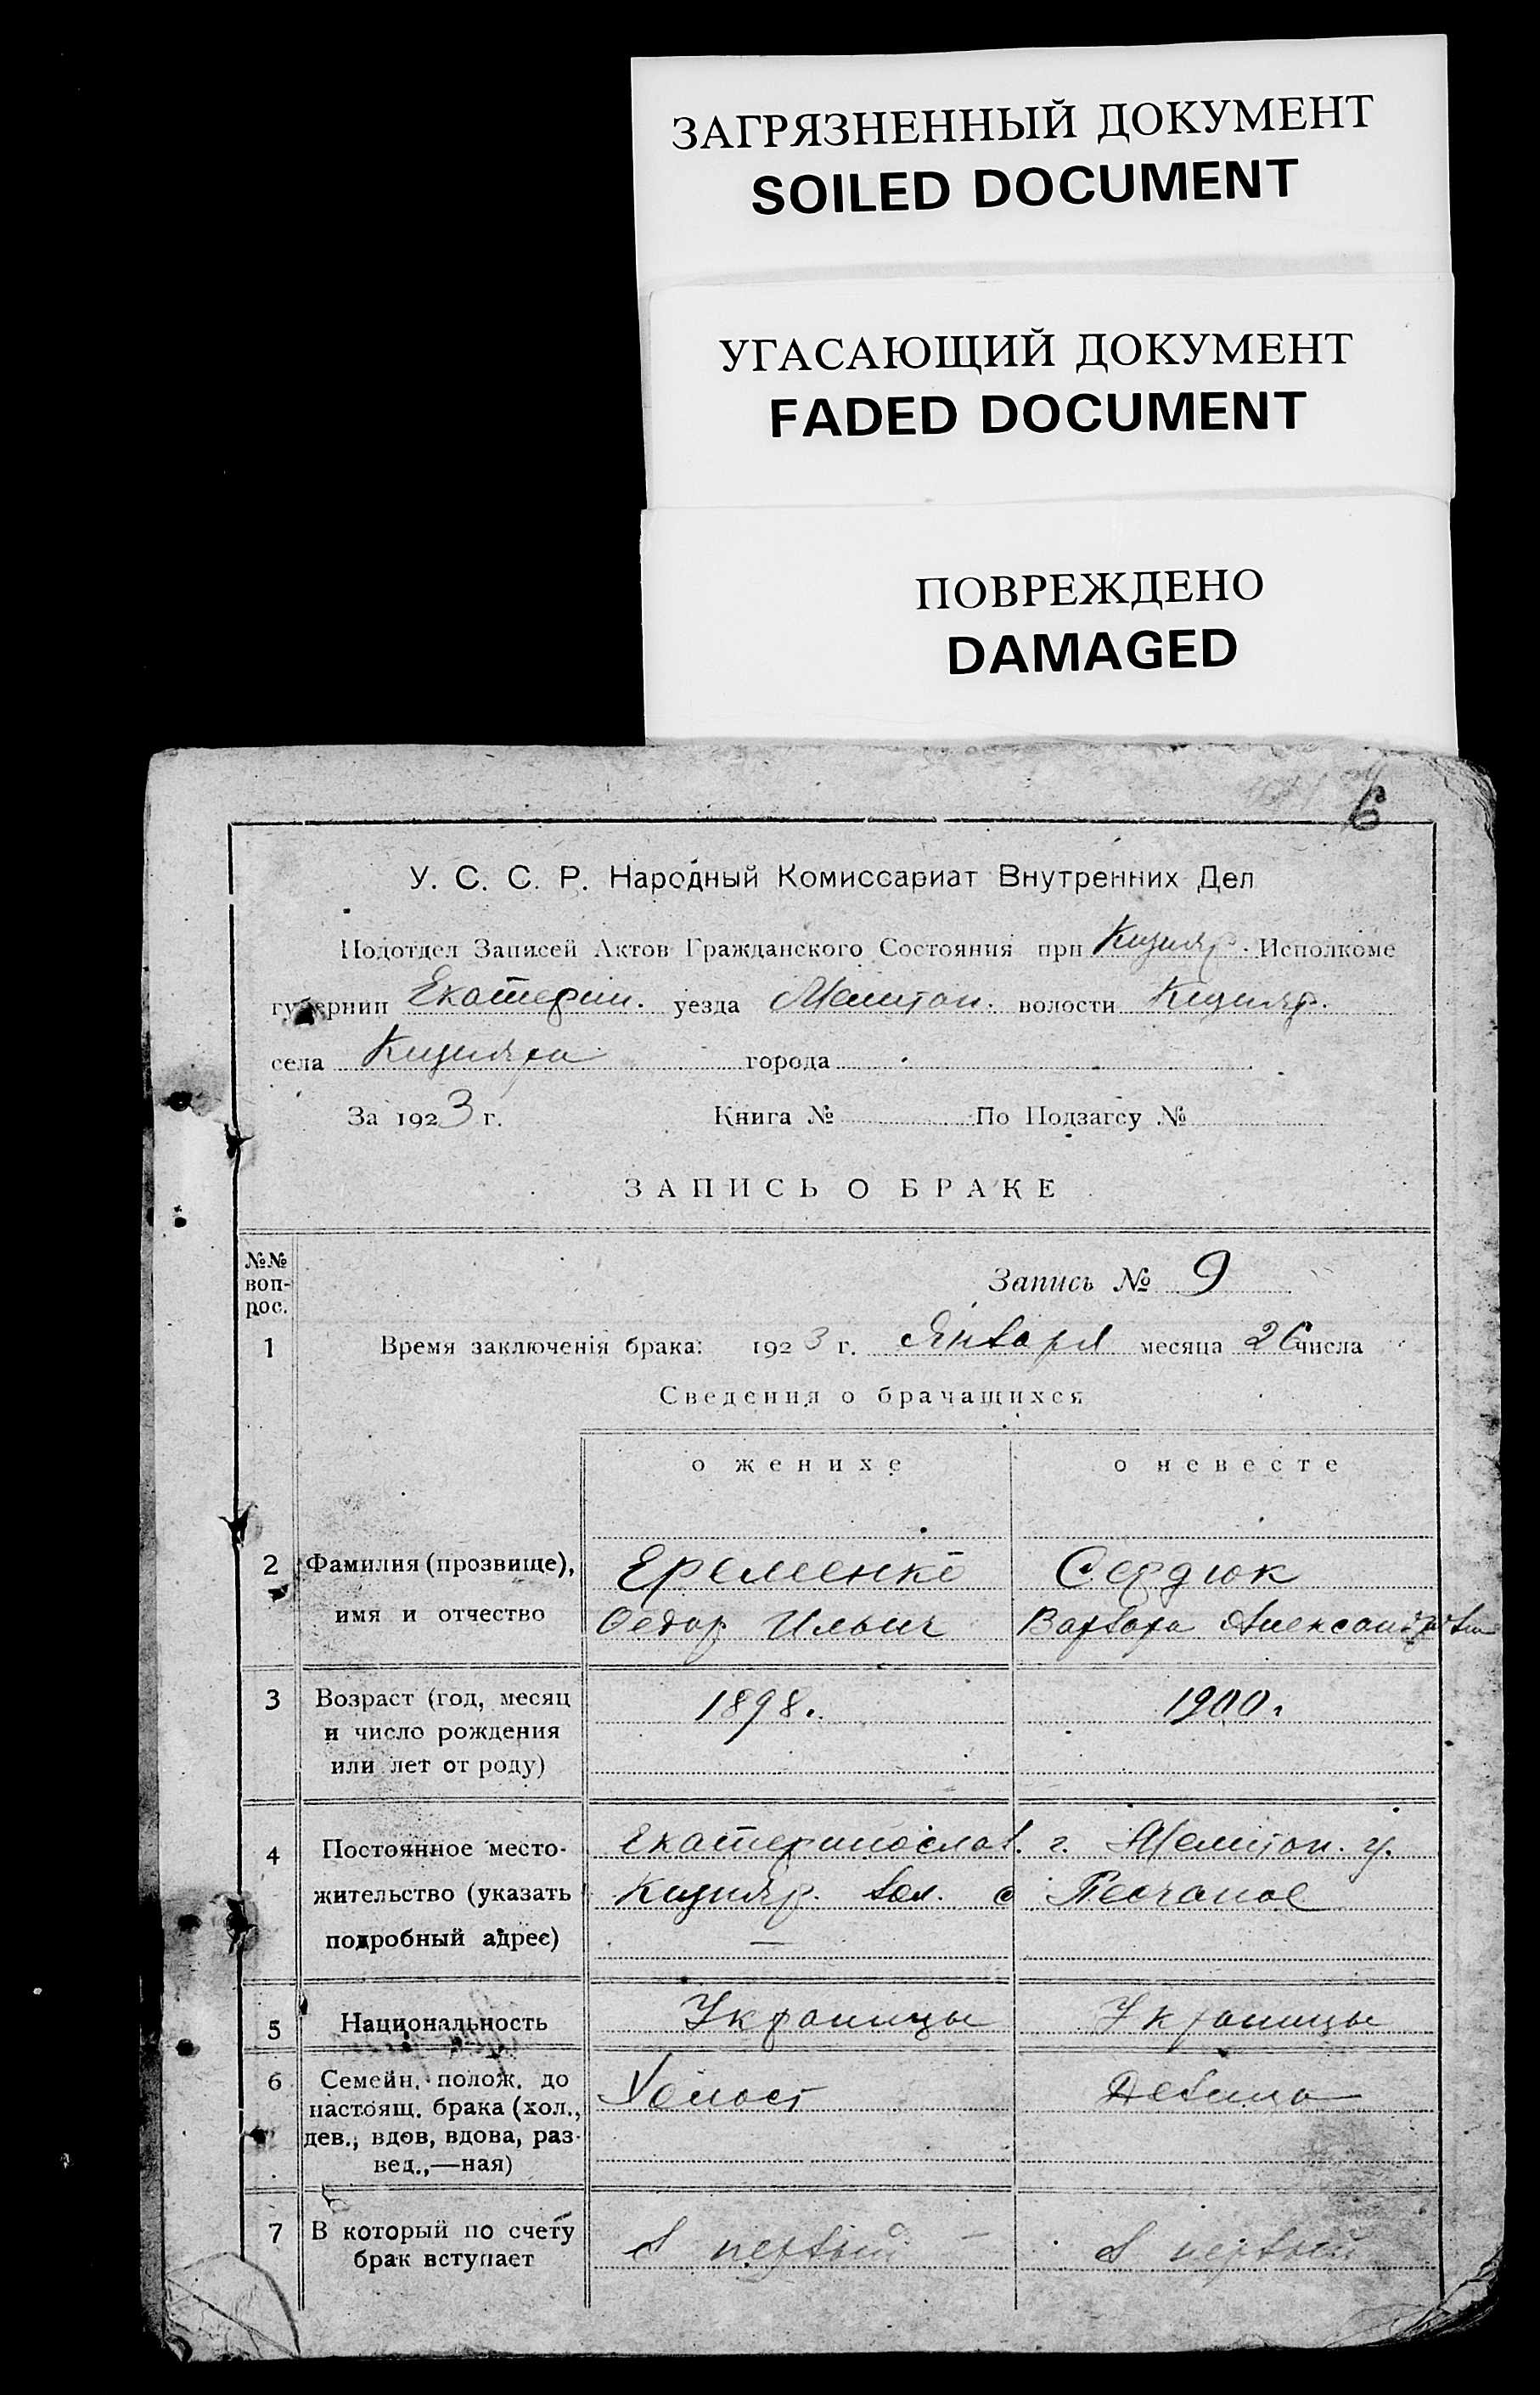 ЗАГРЯЗНЕННЫЙ ДОКУМЕНТ
SOILED DOCUMENT
УГАСАЮЩИЙ ДОКУМЕНТ
FADED DOCUMENT
ПОВРЕЖДЕНО
DAMAGED
6
У. С. С. Р. Народный Комиссариат Внутренних Дел
Подотдел Записей Актов Гражданского Состояния при Кизияр. Исполкоме
губернии Екатерин. уезда Мелитоп. волости Кизияр.
села Кизияра города
За 1923 г. Книга № По Подзагсу №
ЗАПИСЬ О БРАКЕ
№№ воп-рос.
Запись № 9
1 Время заключенія брака: 1923 г. Января месяца 26 числа
Сведения о брачащихся
о женихе о невесте
2 Фамилия (прозвище), Еременко Сердюк
имя и отчество Федор Ильич Варвара Александровн
3 Возраст (год, месяц 1898. 1900.
и число рождения
или лет от роду)
4 Постоянное место- Екатеринослав. г. Мелитоп. у.
жительство (указать Кизияр. вол. с Песчаное
подробный адрес) —
5 Национальность Украинцы Украинцы
6 Семейн. полож. до Холост Девица
настоящ. брака (хол.,
дев., вдов, вдова, раз-
вед.,—ная)
7 В который по счету в первый — в первый
брак вступает